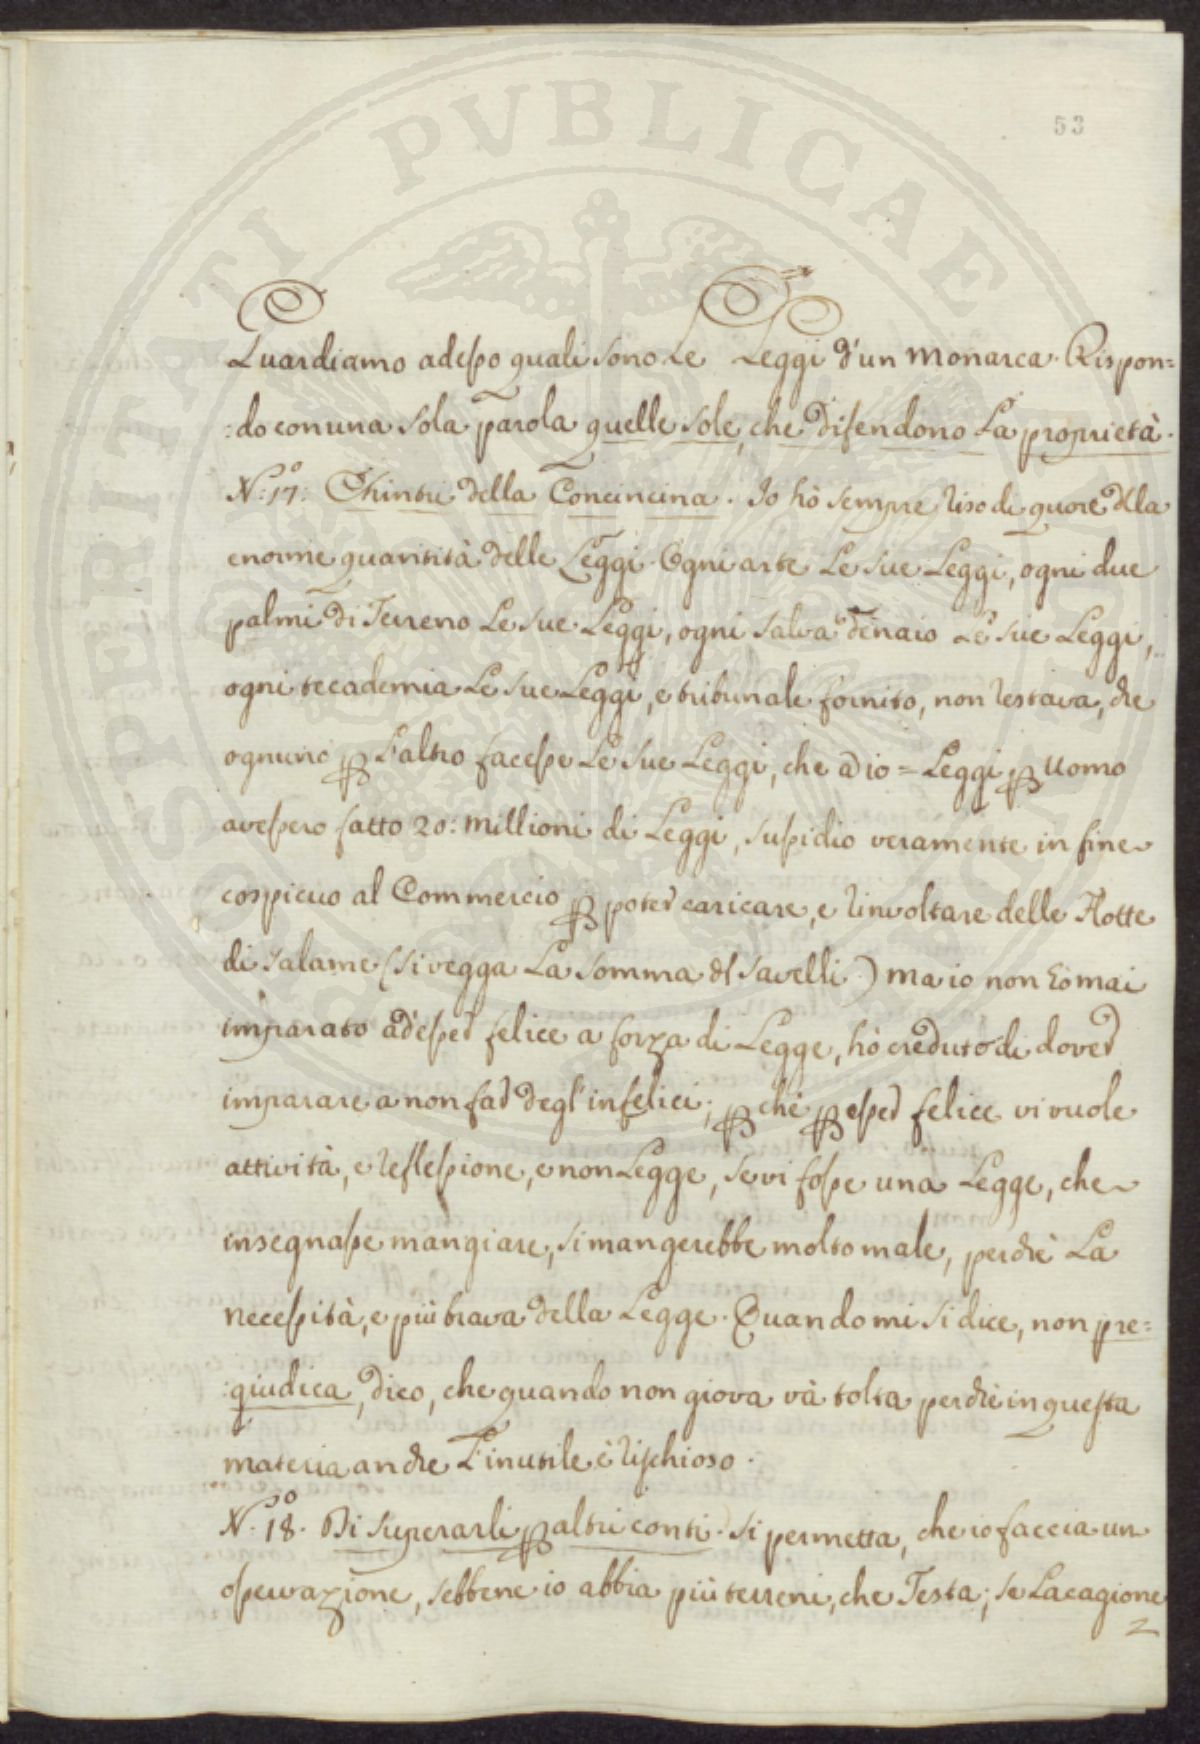 53
Guardiamo adesso quali sono Le Leggi d'un Monarca. Rispon=
:do con una sola parola quelle sole, che difendono La proprietà.
N.º 17: Chintri della Concincina. Io hò sempre riso di quore dlla
enorme quantità delle Leggi. Ogni arte Le sue Leggi, ogni due
palmi di Terreno Le sue Leggi, ogni salva denaio Le sue Leggi,
ogni accademia Le sue Leggi, e tribunale fornito, non restava, che
ognuno per L'altro facesse Le sue Leggi, che a dio = Leggi per Uomo
avessero fatto 20: millioni di Leggi, sussidio veramente in fine
cospicuo al Commercio per poter caricare, e rinvoltare delle Flotte
di salame (si vegga La somma del Savelli.) ma io non hò mai
imparato ad esser felice a forza di Legge, hò creduto di dover
imparare a non far degl'infelici; per chè per esser felice vi vuole
attività, e reflessione, e non Legge, se vi fosse una Legge, che
insegnasse mangiare, si mangerebbe molto male, perchè La
necessità, e più brava della Legge. Quando mi si dice, non pre=
:giudica, dico, che quando non giova và tolta perchè in questa
materia anche L'inutile è rischioso.
N.º 18. Di superarli per altri conti. Si permetta, che io faccia un
osservazione, sebbene io abbia più terreni, che Testa; se La cagione